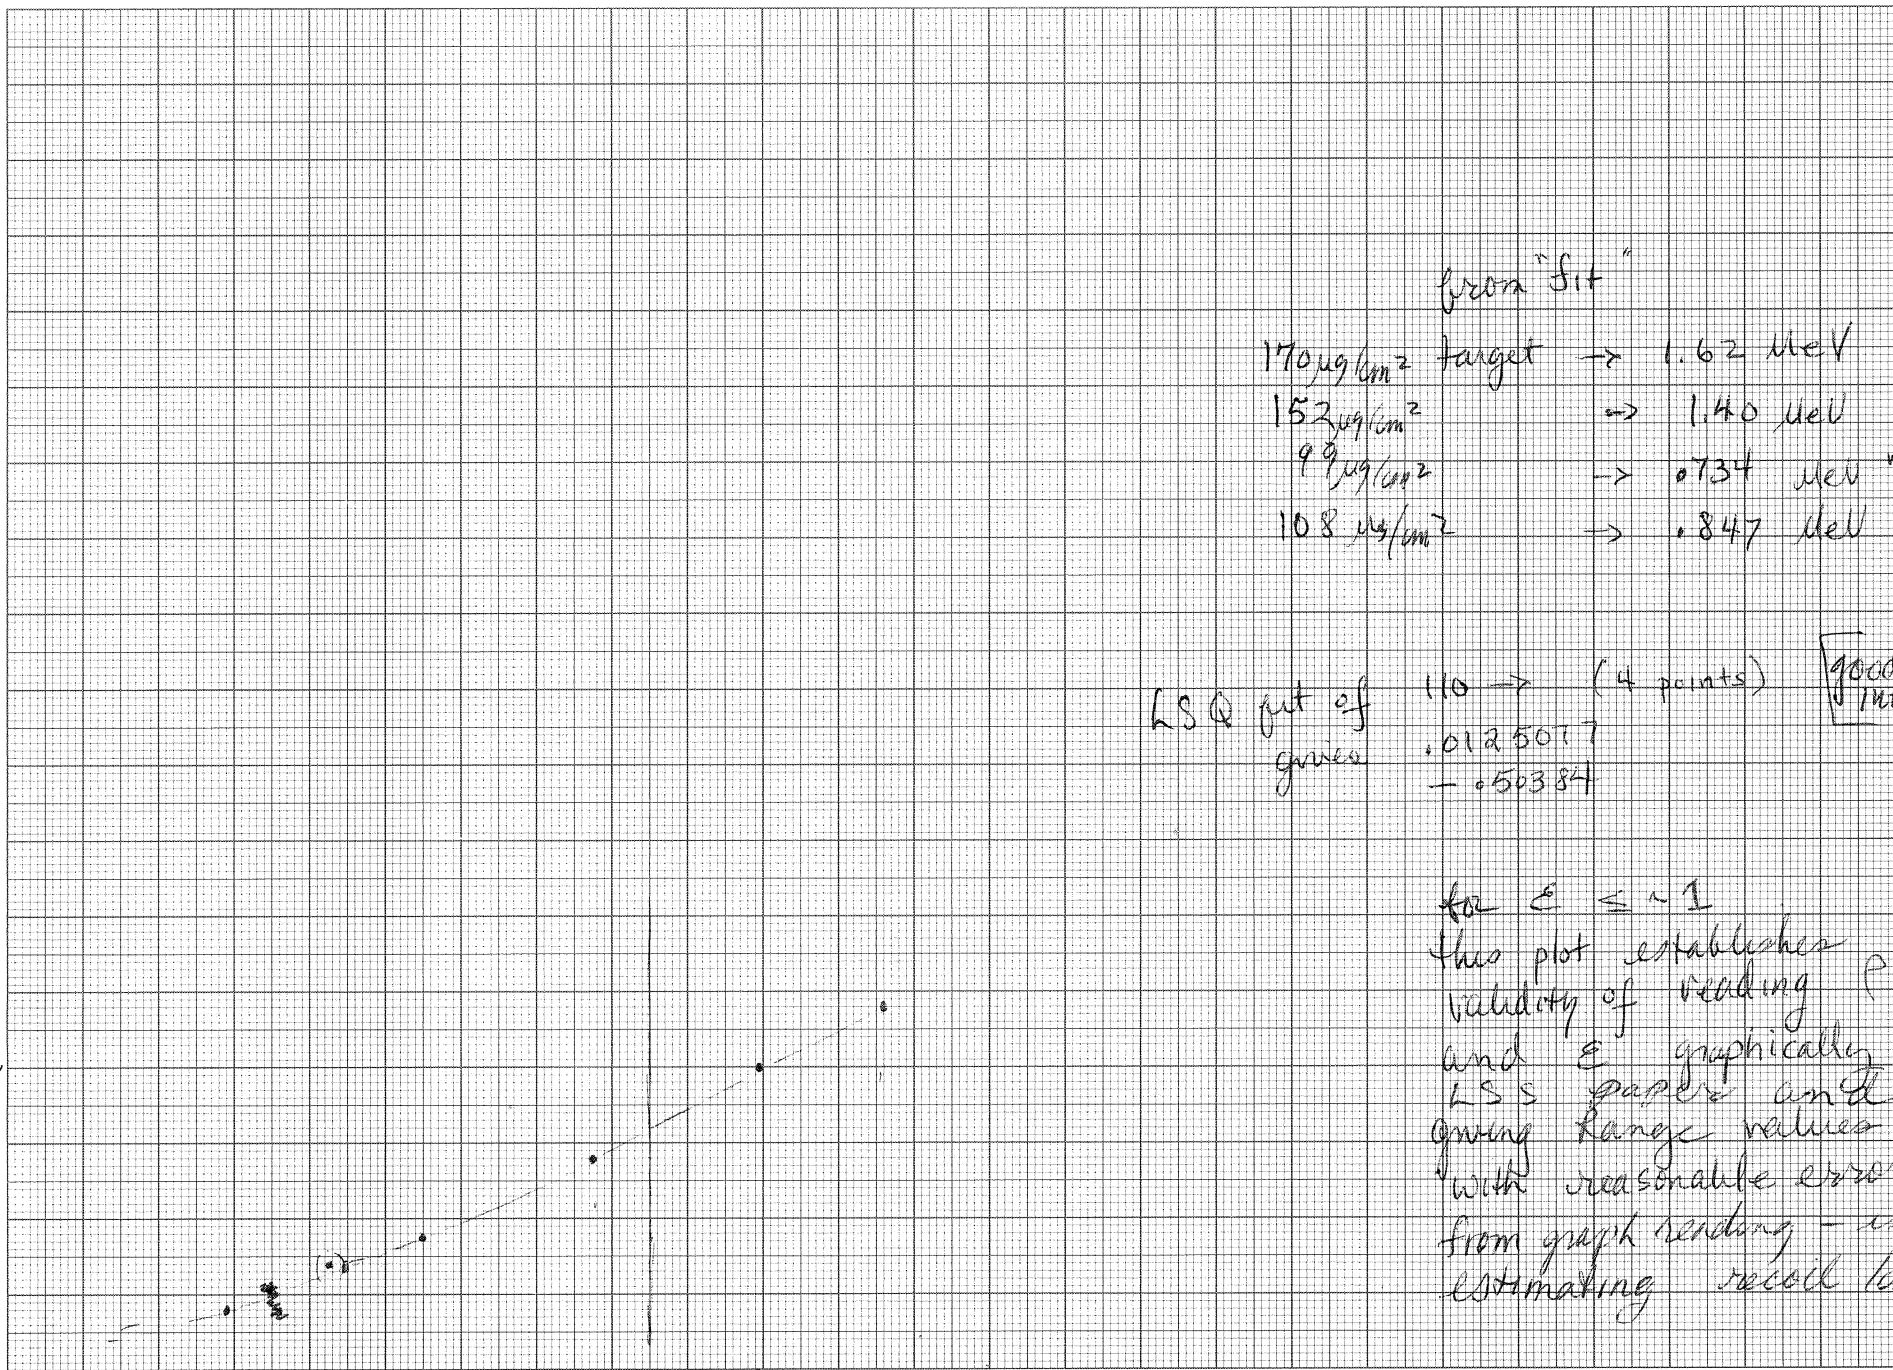 from "fit"
170 μg/cm² target → 1.62 MeV
152 μg/cm² → 1.40 MeV
99 μg/cm² → .734 MeV "
108 μg/cm² → .847 MeV
LSQ fit of 110 → (4 points)
good
gives .0125077
- .50384
for ε ≤ ~1
this plot establishes
validity of reading ρ
and ε graphically
LSS paper and
giving Range values
with reasonable erro
from graph reading -
estimating recoil